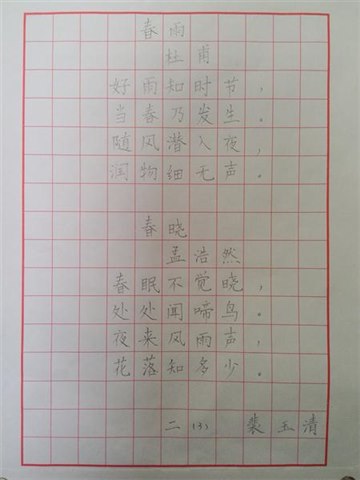 春雨
杜甫
好雨知时节，
当春乃发生。
随风潜入夜，
润物细无声。
春晓
孟浩然
春眠不觉晓，
处处闻啼鸟。
夜来风雨声，
花落知多少。
二（3） 裴玉清